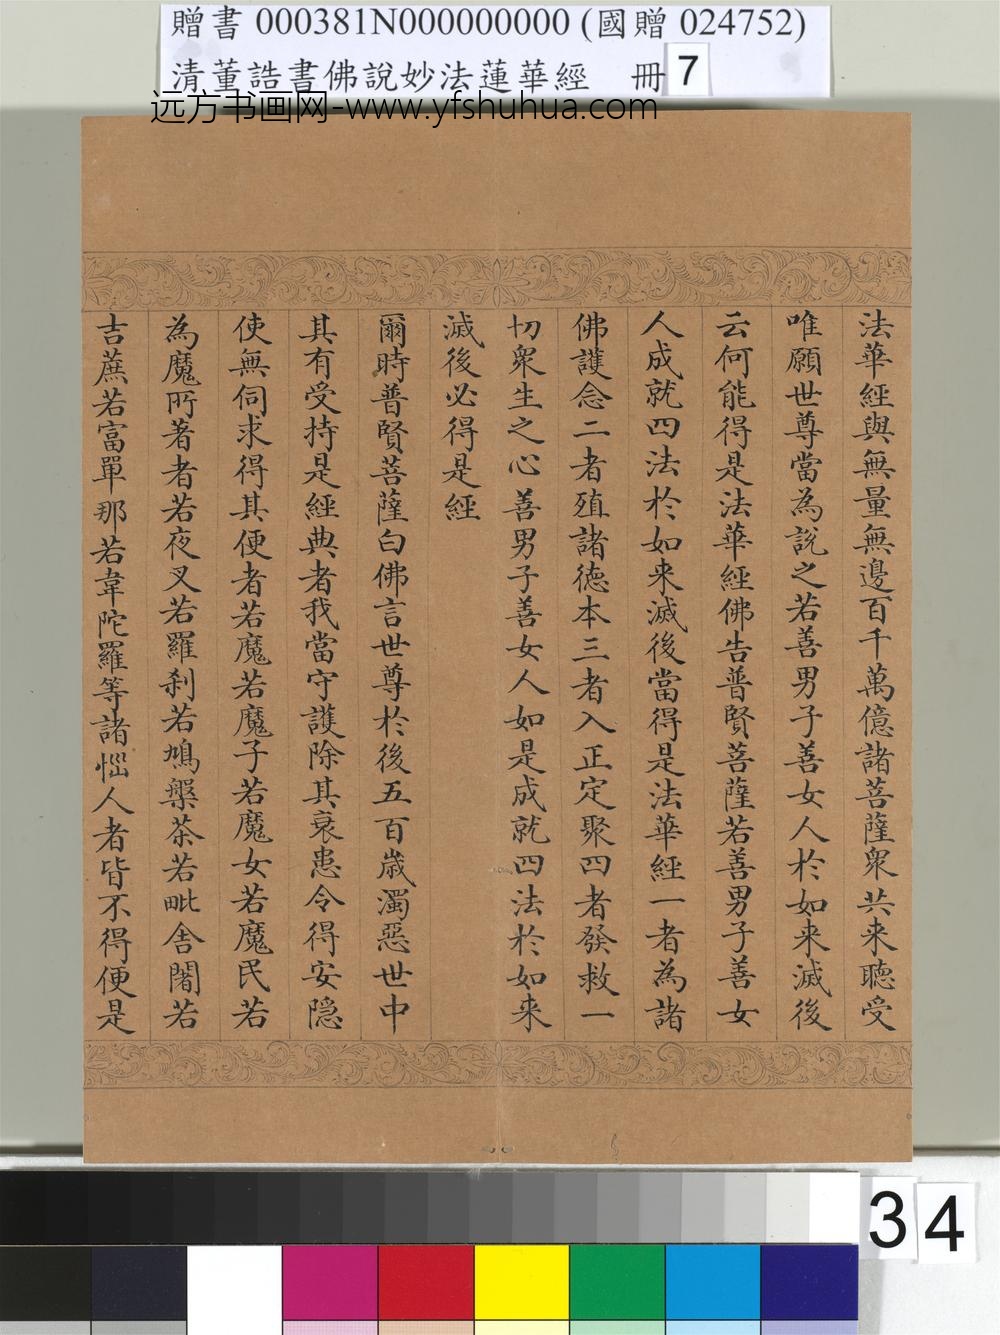 贈書 000381N000000000 (國贈 024752)
清董誥書佛說妙法蓮華經 冊 7
远方书画网-www.yfshuhua.com
法華經與無量無邊百千萬億諸菩薩眾共来聽受
唯願世尊當為說之若善男子善女人於如来滅後
云何能得是法華經佛告普賢菩薩若善男子善女
人成就四法於如来滅後當得是法華經一者為諸
佛護念二者殖諸德本三者入正定聚四者發救一
切眾生之心善男子善女人如是成就四法於如来
滅後必得是經
爾時普賢菩薩白佛言世尊於後五百歲濁惡世中
其有受持是經典者我當守護除其衰患令得安隱
使無伺求得其便者若魔若魔子若魔女若魔民若
為魔所著者若夜叉若羅刹若鳩槃茶若毗舍闍若
吉蔗若富單那若韋陀羅等諸惱人者皆不得便是
34